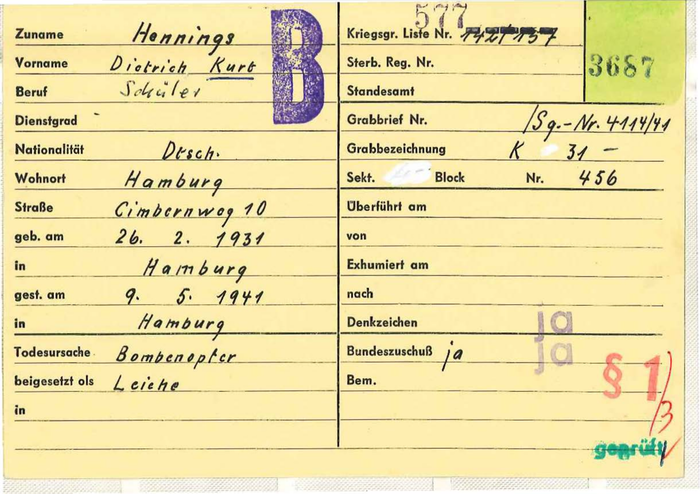 Zuname Hennings
Vorname Dietrich Kurt
Beruf Schüler
Dienstgrad -
Nationalität Dtsch.
Wohnort Hamburg
Straße Cimbernweg 10
geb. am 26. 2. 1931
in Hamburg
gest. am 9. 5. 1941
in Hamburg
Todesursache Bombenopfer
beigesetzt als Leiche
in
B
577
Kriegsgr. Liste Nr. 142/157
Sterb. Reg. Nr.
3687
Standesamt
Grabbrief Nr. /Sg.-Nr. 4114/41
Grabbezeichnung K 31 -
Sekt. Block Nr. 456
Überführt am
von
Exhumiert am
nach
Denkzeichen ja
Bundeszuschuß ja ja
Bem.
§ 1/3
geprüft